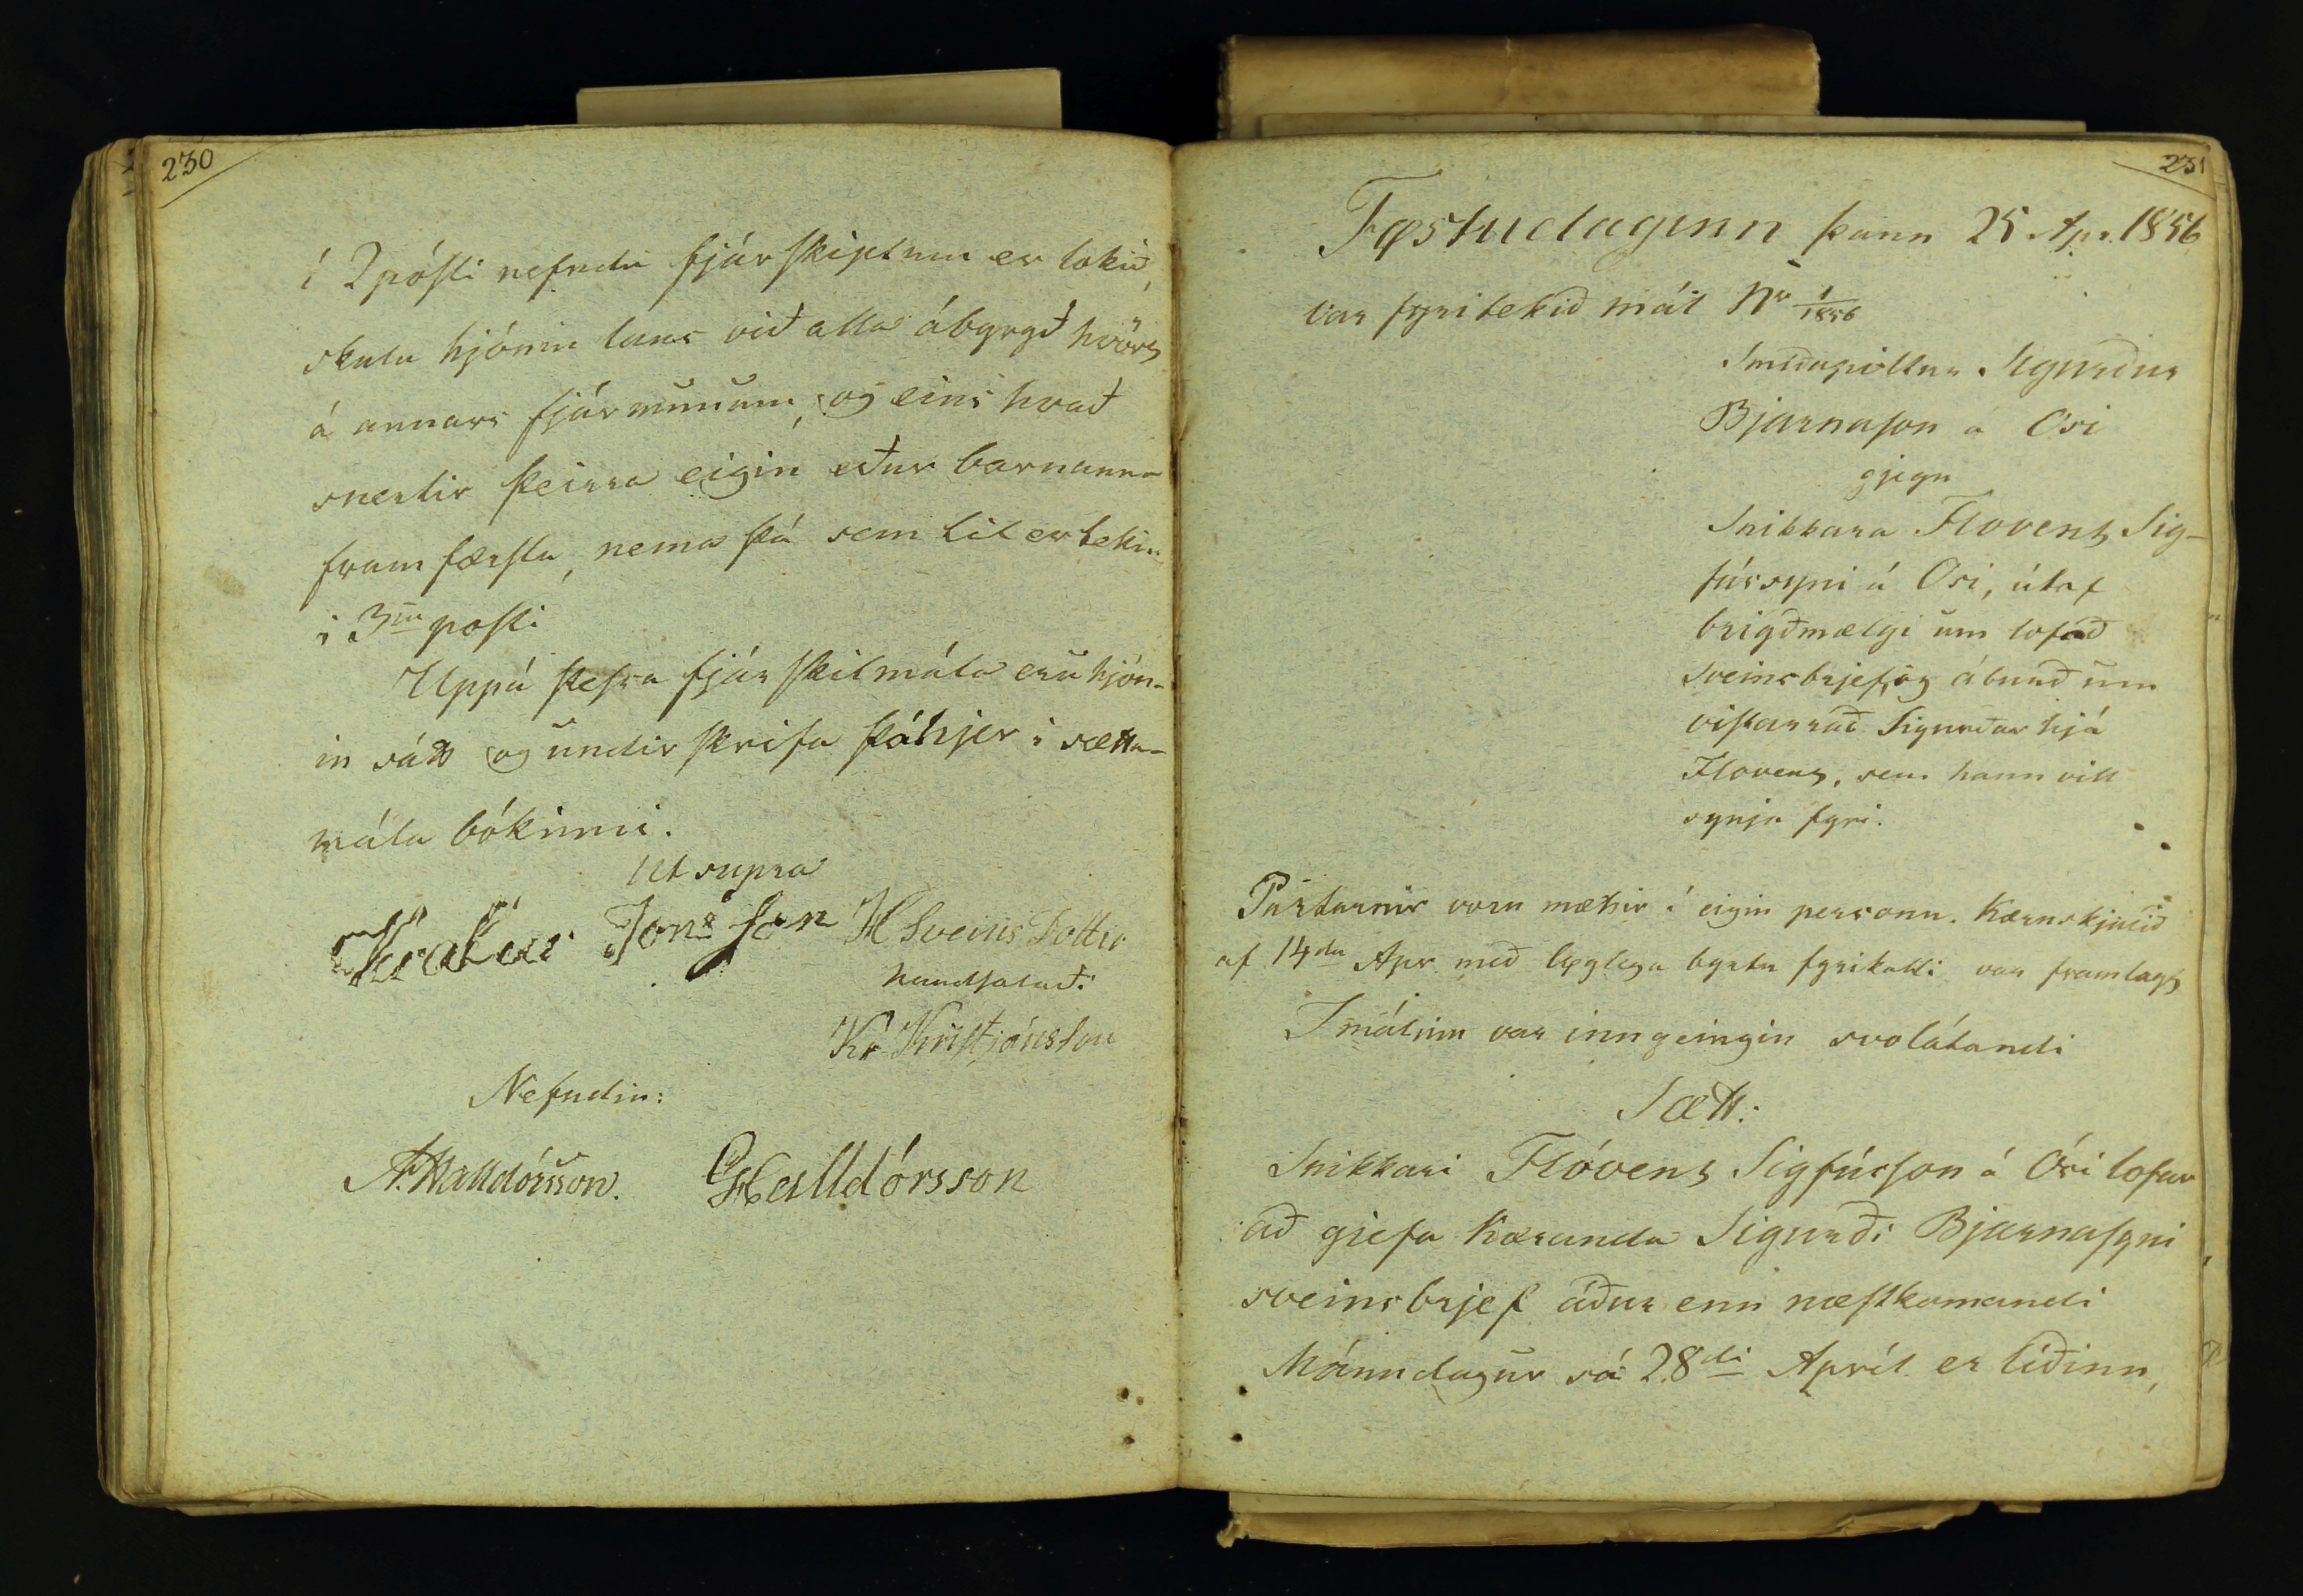 230
í 2 pósti nefndu fjárskiptum er lokið,
skulu hjónin laus við alla ábyrgð hvörs
á annars fjármunum, og eins hvað
snertir þeirra eigin eður barnanna
framfærslu, nema þá sem til er tekin
i 3ja posti
Uppá þessa fjárskilmála eru hjón-
in sátt og undirskrifa þá hjer i sætta-
mála bókinni.
Ut supra
Jons son H Sveins Dottir
handsalað:
Kr Kristjánsson
Nefndin:
A. Halldórsson. G Halldórsson
231
Föstudaginn þann 25 Apr. 1856
var fyritekið mál Nr 1/1856
Smíðapiltur Sigurður
Bjarnason á Osi
gjegn
Snikkara Flovent Sig-
fússyni á Osi, útaf
brigðmælgi um lofað
sveinsbrjef, og áburð um
vistarráð Sigurðar hjá
Flovent, sem hann vill
synja fyri.
Partarnir voru mættir í eigin personu. Kæruskjalið
af 14da Apr með löglega byrtu fyrikalli var framlagt
I málinu var inngeingin svolátandi
Sætt:
Snikkari Flóvent Sigfússon á Ósi lofar
að gjefa Kæranda Sigurði Bjarnasyni
sveinsbrjef áður enn næstkomandi
Mánndagur sá 28di Apríl er liðinn,